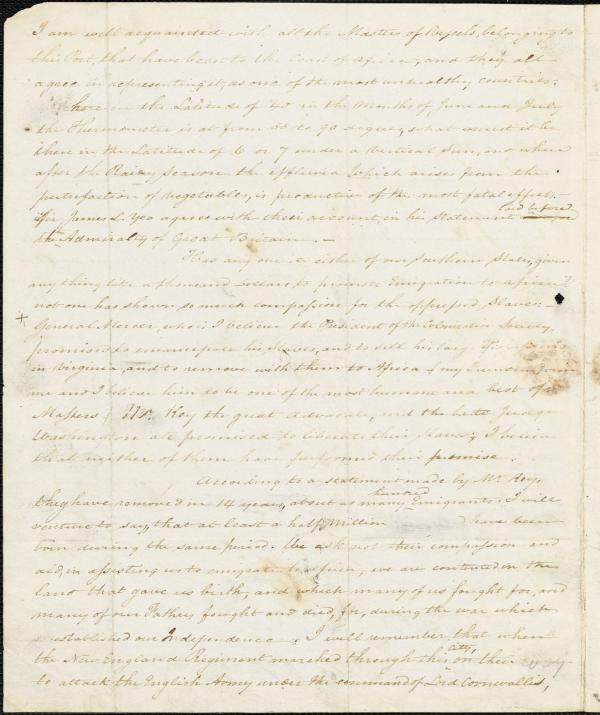 I am well acquainted with all the Masters of Vessels, belonging to
this Port, that have been to the Coast of Africa, and they all
agree in representing it, as one of the most unhealthy countries.
here in the Latitude of 40 in the months of June and July
the Thermometer is at from 88 to 90 degrees, what must it be
there in the Latitude of 6 or 7 under a Vertical Sun, and where
after the Rainy Season the effluvia which arises from the
putrifaction of vegetables, is productive of the most fatal effects.
Sir James L. Yeo agrees with their account, in his Statement laid before
the Admiralty of Great Britain. —
Has any one in either of our Southern States, given
any thing like a thousand Dollars to promote Emigration to Africa?
not one has shown so much compassion for the oppressed Slave.
General Mercer, who is I believe the President of the Colonization Society,
promised to emancipate his Slaves, and to sell his large in
in Virginia, and to remove with them to Africa my
me and I believe him to be one of the most humane and best of
Masters; Mr. Key the great Advocate, and the late Judge
Washington all promised to liberate their Slaves; I believe
that neither of them have performed their promise.
According to a statement made by Mr. Key,
they have removed in 14 years, about as many hundred Emigrants. I will
venture to say, that at least a half Million have been
born during the same period. We ask not their compassion and
aid, in assisting us to emigrate to Africa, we are contented in the
land that gave us birth, and which many of us fought for, and
many of our Fathers fought and died, for, during the war which
established our Independence. I well remember, that when
the New England Regiment marched through this City, on their way
to attack the English Army under the command of Lord Cornwallis,